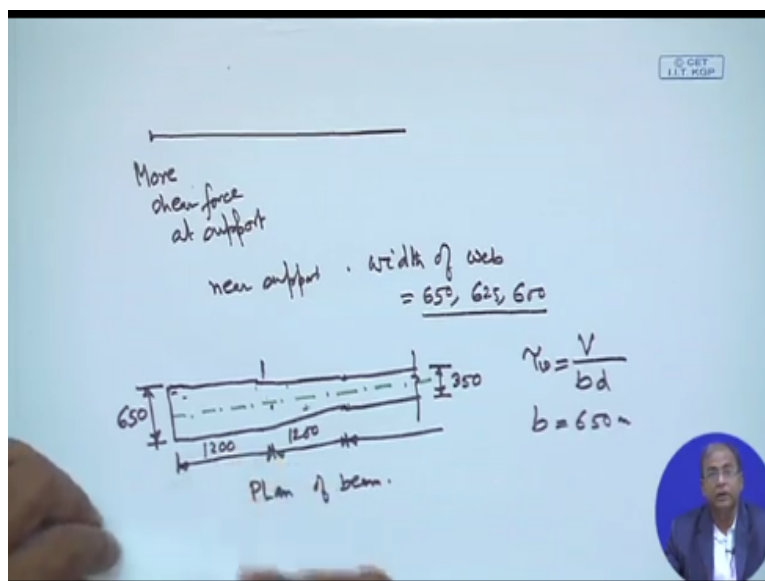 © CET
I.I.T. KGP
More
shear force
at support
near support . width of web
= 650, 625, 600
650
350
1200
1200
Plan of beam.
τv = V / bd
b = 650 m